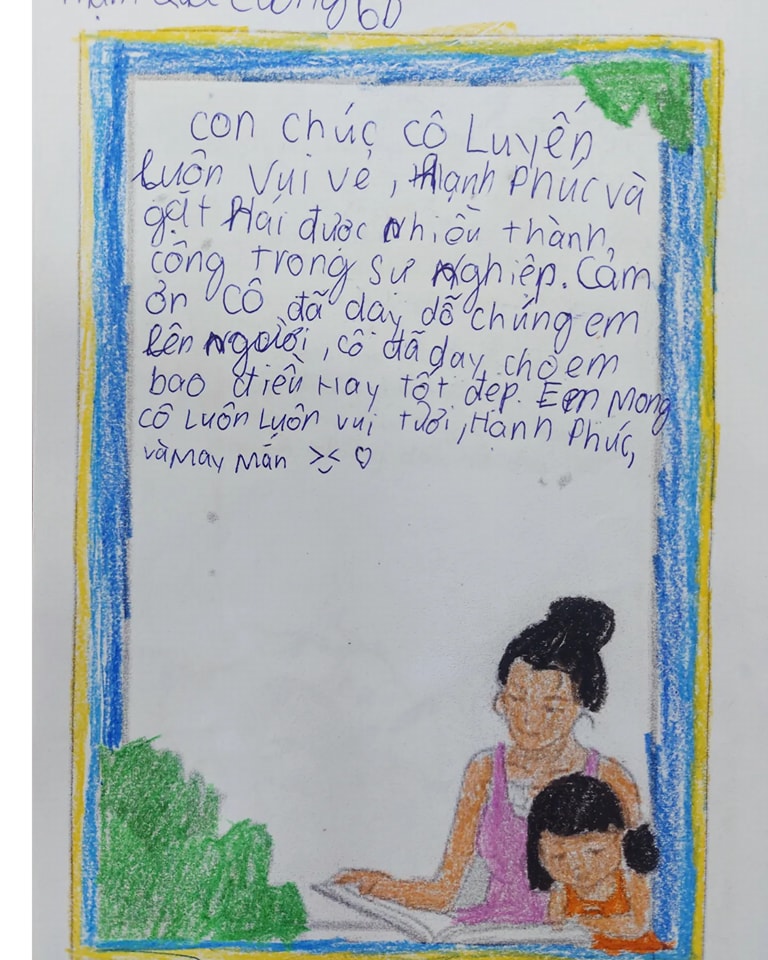 Cường 6D
con chúc cô Luyến
luôn vui vẻ, Hạnh Phúc và
gặt Hái được Nhiều thành
công trong sự Nghiệp. Cảm
ơn cô đã dạy dỗ chúng em
lên người, cô đã dạy cho em
bao điều Hay tốt đẹp. Em Mong
cô Luôn Luôn vui tươi, Hạnh Phúc,
và May Mắn >< ♡